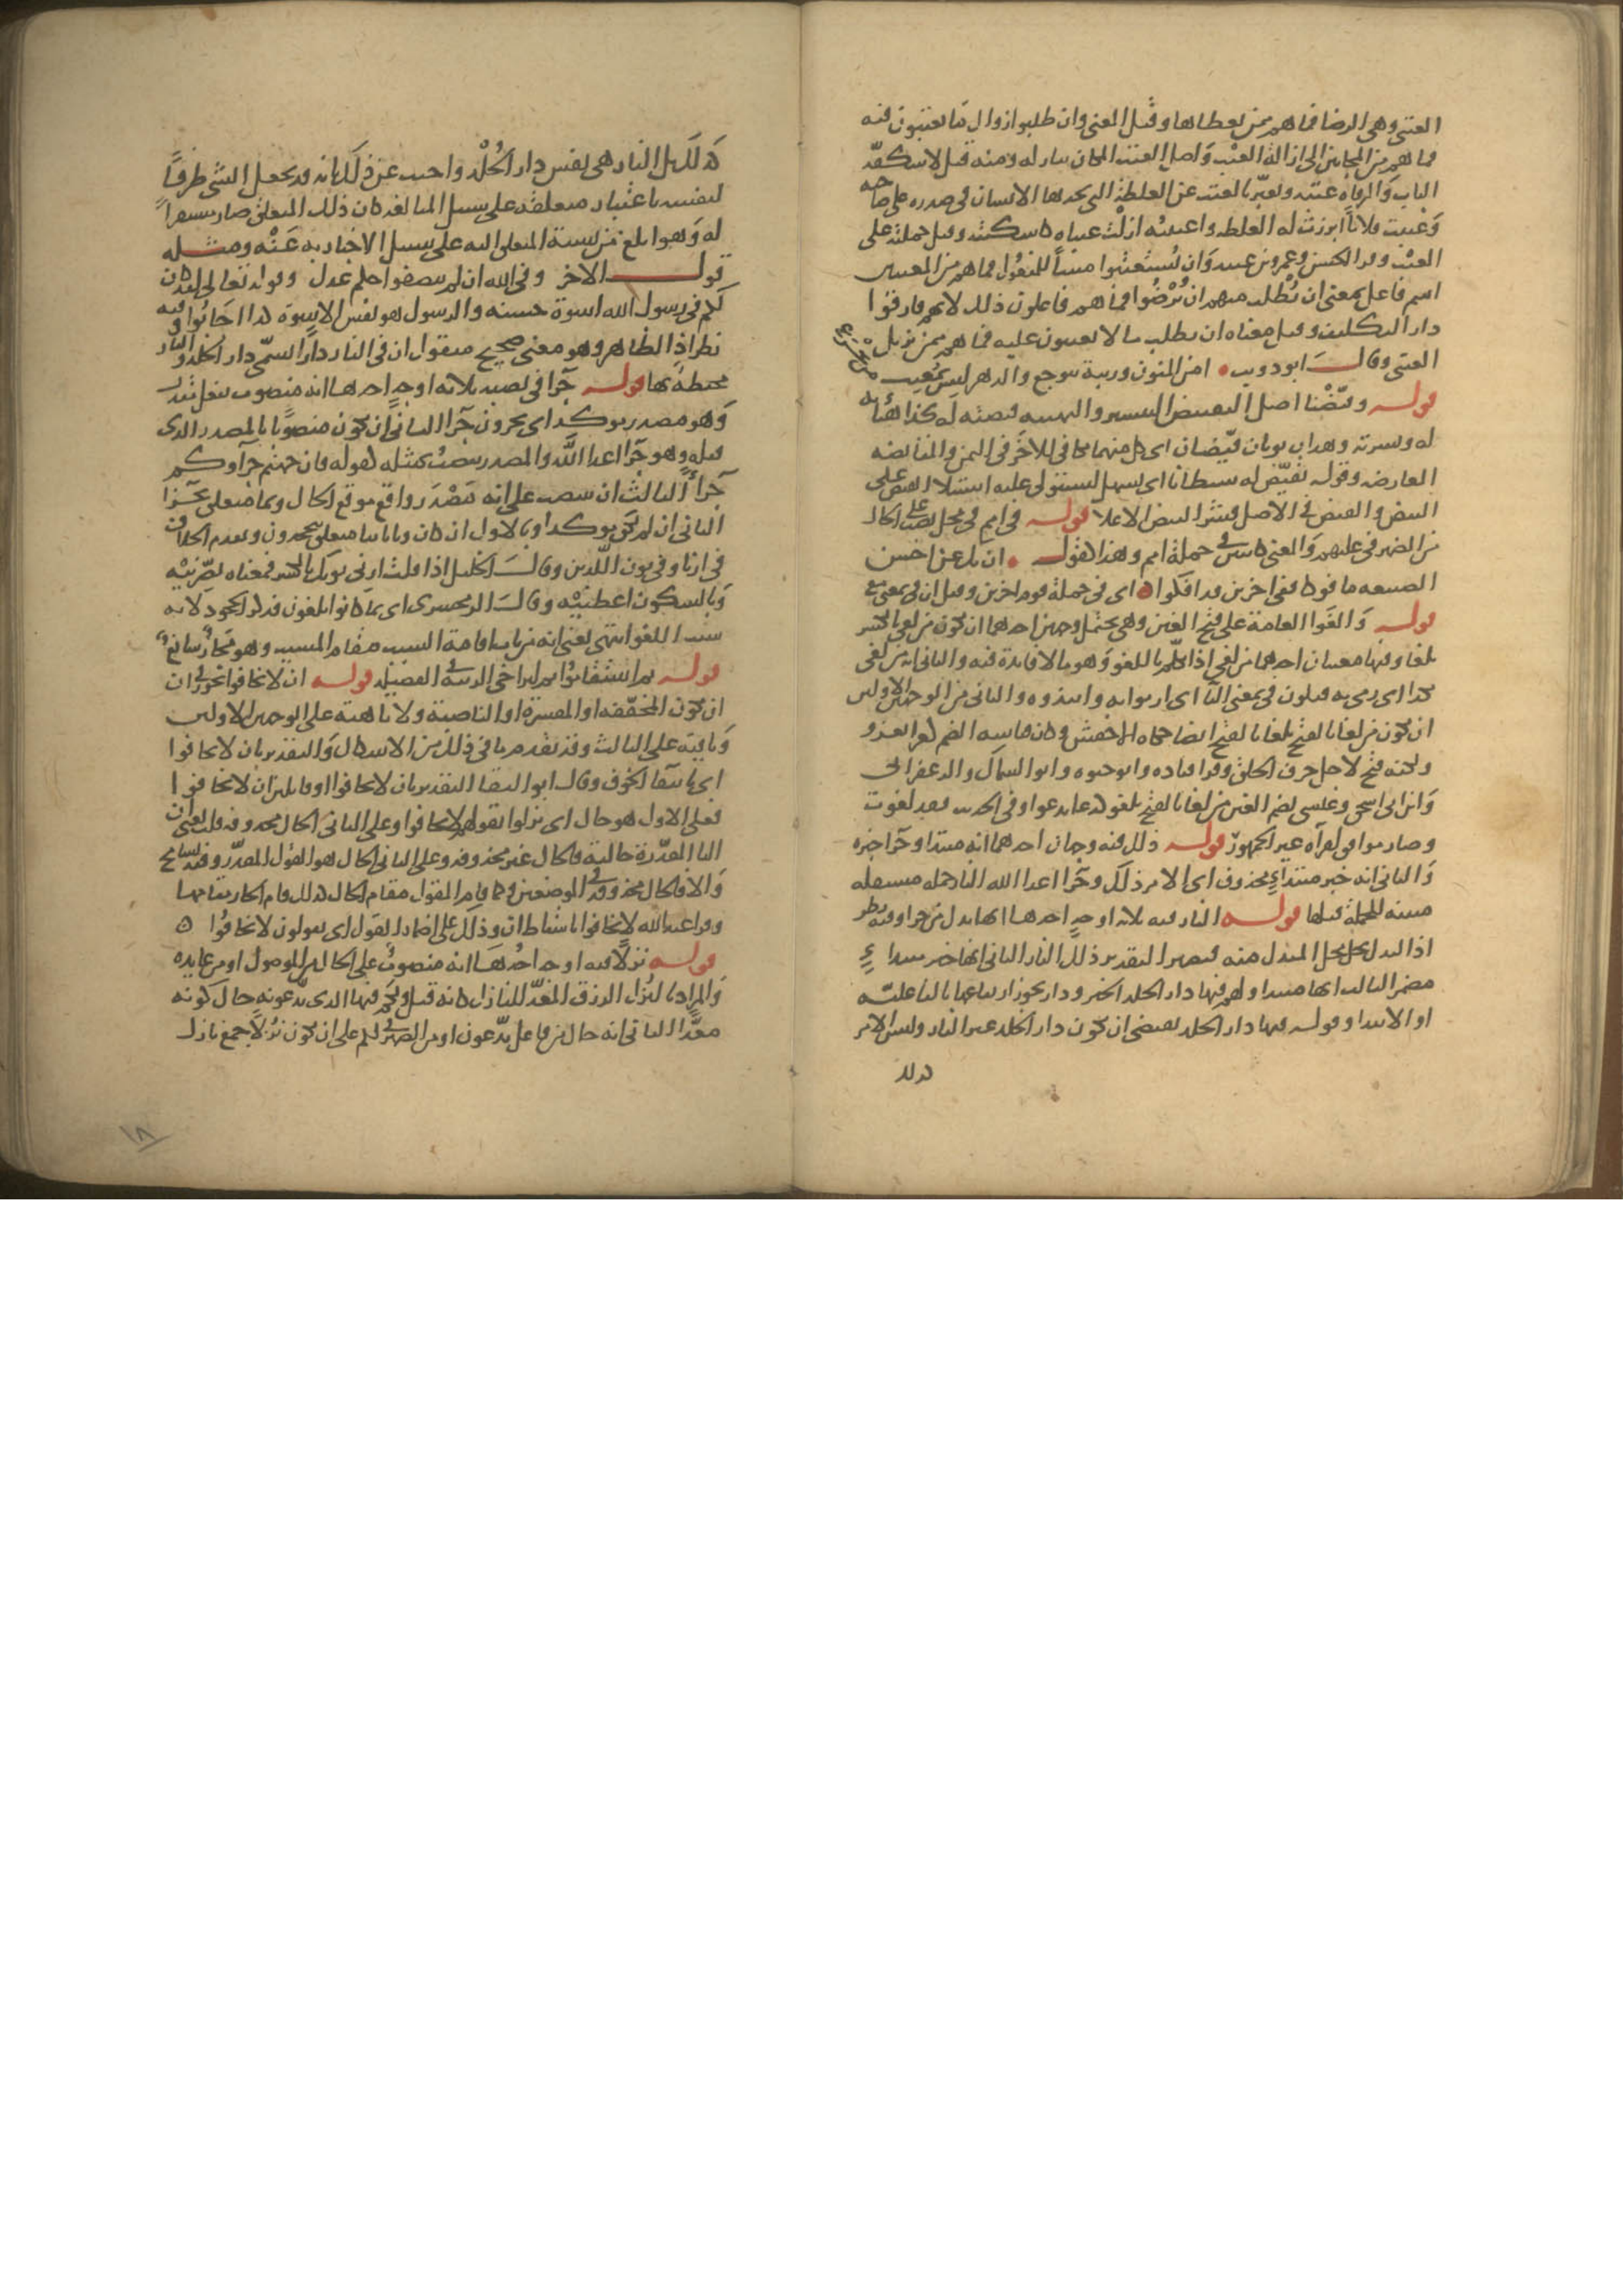 العتبى وهى الرضا فما هم ممن يعطاها وقيل المعنى وان طلبوا زوال ما يعتبون فيه
فما هم من المجابين الى ازالة العتب واصل العتب المكان بنازله ومنه قيل لاسكفة
الباب والمرقاه عتبه ويعبر بالعتب عن الغلظة التى يجدها الانسان فى صدره على صاحبه
وعتبت فلانا ابرزت له الغلظه واعتبته ازلت عتباه كاشكيته وقيل حملته على
العتب وقرا الحسن وعمرو بن عبيد وان يُستعتبوا مبنيا للمفعول فما هم من المعتبين
اسم فاعل بمعنى ان يُطلب منهم ان يُرْضُوا فما هم فاعلون ذلك لانهم فارقوا
دار التكليف وقيل معناه ان يطلب ما لا يعتبون عليه فما هم ممن يزيل
العتبى وقال ابو ذويب • امن المنون وريبه تتوجع والدهر ليس بمُعتِب من يجزع
قوله وقيّضْنا اصل التقييض التيسير والتهيئه قيضته له كذا هيأته
له ويسرته وهذان ثوبان قيّضان اى كل منهما مكافى للاخَر فى الثمن والمقايضه
المعارضه وقوله نقيّض له شيطانا اى نسهل ليستولى عليه استيلا القيض على
البيض والقيض فى الاصل قشر البيض الاعلا قوله فى امم فى محل نصب على الحال
من الضمير فى عليهم والمعنى كائنين فى جملة امم وهذا كقوله • ان تك عن احسن
الصنيعه مافوكا ففى اخرين قد افكوا ه اى فى جملة قوم اخرين وقيل ان فى بمعنى مع
قوله وَالغَوا العامة على فتح الغين وهى تحتمل وجهين احدهما ان يكون من لغى بالكسر
يلغا وفيها معنيان احدهما من لغى اذا تكلم باللغو وهو ما لا فايدة فيه والثانى انه من لغى
بكذا اى رمى به فيكون فى بمعنى البا اى ارموا به وانبذوه والثانى من الوجهين الاولين
ان يكون من لغا بالفتح يلغا بالفتح ايضا حكاه الاخفش وكان قياسه الضم كغزا يغزو
ولكنه فتح لاجل حرف الحلق وقرا قتاده وابو حيوه وابو السمال والزعفرانى
وابن ابى اسحق وعيسى بضم الغين من لغا بالفتح يلغو كدعا يدعو وفى الحديث فقد لغوت
وصار موافق لقرآه غير الجمهور قوله ذلك فيه وجهان احدهما انه مبتدا وجزا خبره
وَالثانى انه خبر مبتداءٍ محذوف اى الامر ذلك وجزا اعدا الله النار جمله مستقله
مبينه للجملة قبلها قوله النار فيه ثلاثه اوجهٍ احدها انها بدل من جزا وفيه نظر
اذ البدل يحل محل المبدل منه فيصير التقدير ذلك النار الثانى انها خبر مبتداءٍ
مضمر الثالث انها مبتدا ولهم فيها دار الخلد الخبر ودار يجوز ارتفاعها بالفاعليّه
او الابتدا وقوله فيها دار الخلد يقتضى ان يكون دار الخلد غير النار وليس الامر
كذلك
كذلك بل النار هى نفس دار الخُلْد واجيب عن ذلك بانه قد يجعل الشى ظرفًا
لنفسه باعتبار متعلقه على سبيل المبالغه كان ذلك المتعلق صار مستقرا
له وهو ابلغ من نسبة المتعلق اليه على سبيل الاخبار به عَنْه ومثله
قول الاخر وفى الله ان لم ينصفوا حكم عدل وقوله تعالى لقد كان
لكم فى رسول الله اسوة حسنه والرسول هو نفس الاسوة كذا اجابوا وفيه
نظر اذ الظاهر وهو معنى صحيح منقول ان فى النار دارا تسمّى دار الخلد والنار
محيطة بها قوله جزا فى نصبه ثلاثه اوجهٍ احدها انه منصوب بفعل مقدر
وَهو مصدر موكد اى يجزون جزا الثانى ان يكون منصوبا بالمصدر الذى
قبله وهو جزا اعدا اللَّه والمصدر ينصب بمثله كقوله فان جهنم جزاوكم
جزاءً الثالث ان ينتصب على انه مَصْدَر واقع موقع الحال وبما متعلق بجزا
الثانى ان لم يكن موكدا وبالاول ان كان وباياتنا متعلق بيجحدون وتقدم الخلاف
فى ارنا وفى نون اللّذين وقال الخليل اذا قلت ارنى ثوبك بالكسر فمعناه بصّرنيْه
وبالسكون اعطنيْه وقال الزمخشرى اى بما كانوا يلغون فذكر الجحود لانه
سبب اللغو انتهى يعنى انه من باب اقامة السبب مقام المسبب وهو مجازٌ سائغٌ
قوله ثم استقاموا ثم لتراخى الرتبة فى الفضيله قوله ان لا تخافوا يجوز فى ان
ان تكون المخففه او المفسرة او الناصبة ولا ناهية على الوجهين الاولين
وَنافيه على الثالث وقد تقدم ما فى ذلك من الاشكال وَالتقدير بان لا تخافوا
اى بانتفا الخوف وقال ابو البقا التقدير بان لا تخافوا او قايلين ان لا تخافوا
فعلى الاول هو حال اى تنزلوا بقولهم لا تخافوا وعلى الثانى الحال محذوفه قلت يعنى ان
البا المقدّرة حالية فالحال غير محذوفه وعلى الثانى الحال هو القول المقدّر وفيه تسامح
وَالا فالحال محذوف فى الموضعين وكما قام المقول مقام الحال كذلك قام الجار مقامها
وقرا عبد الله لا تخافوا باسقاط ان وذلك على اضمار القول اى يقولون لا تخافوا ه
قوله نزلًا فيه اوجه احدُهَا انه منصوبٌ على الحال من الموصول او من عايده
وَالمراد بالنُزل الرزق المعَدّ للنازل كانه قيل ولكم فيها الذى تدّعونه حال كونه
معدًّا الثانى انه حال من فاعل تدّعون او من الضمير فى لكم على ان يكون نُزُلًا جمع نازل
١٨